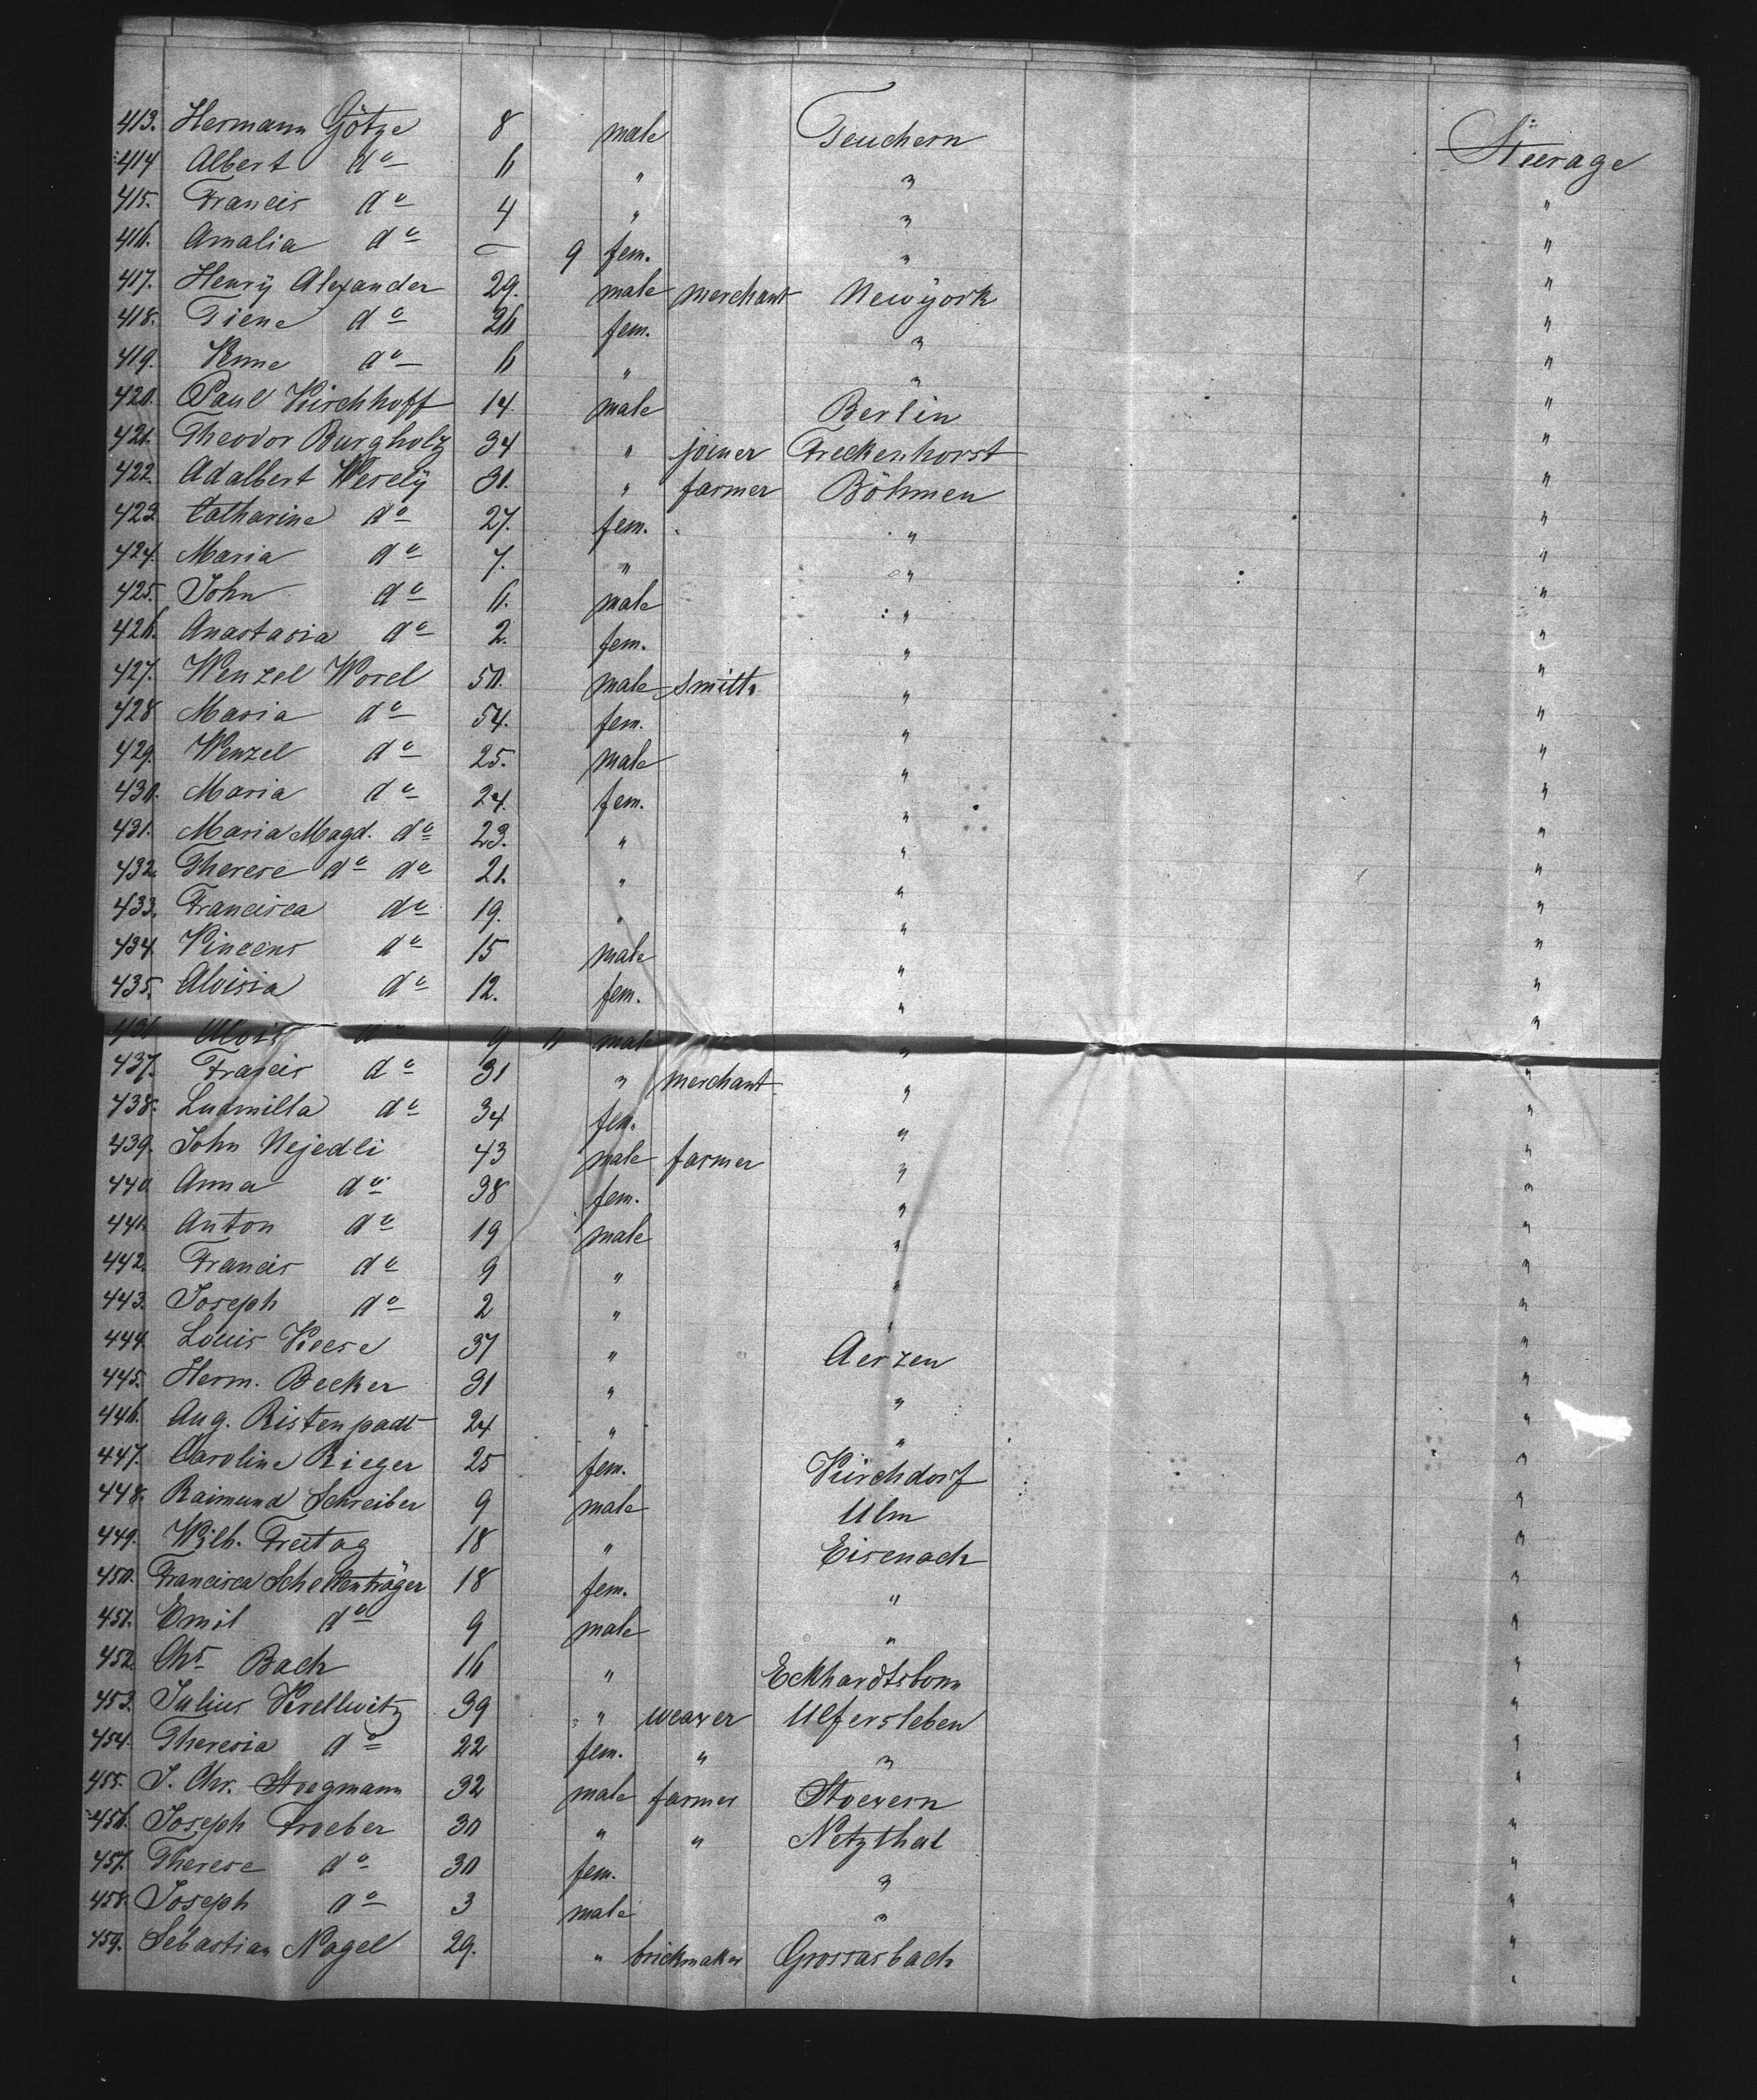 413. Hermann Götze 8 male Teuchern Steerage
414 Albert do 6 " " "
415. Francis do 4 " " "
416. Amalia do – 9 fem. " "
417. Henrÿ Alexander 29. male merchant Newÿork "
418. Tiene do 26 fem. " "
419. Anne do 6 " " "
420. Paul Kirchhoff 14. male Berlin "
421. Theodor Burgholz 34 " joiner Freckenhorst "
422. Adalbert Weselÿ 31. " farmer Böhmen "
423. Catharine do 27. fem. " "
424. Maria do 7. " " "
425. John do 6. male " "
426. Anastasia do 2. fem. " "
427. Wenzel Worel 50. male smith " "
428 Maria do 54. fem. " "
429. Wenzel do 25. male " "
430. Maria do 24. fem. " "
431. Maria Magd. do 23. " " "
432. Therese do do 21. " " "
433. Francisca do 19. " " "
434. Vincens do 15 male " "
435. Aloisia do 12. fem. " "
436 Alois do 9 male " "
437. Francis do 31 " merchant " "
438. Ludmilla do 34 fem. " "
439. John Nejedli 43 male farmer " "
440 Anna do 38 fem. " "
441. Anton do 19 male " "
442. Francis do 9 " " "
443. Joseph do 2 " " "
444. Louis Keese 37 " Aerzen "
445. Herm. Becker 31 " " "
446. Aug. Ristenpadt 24 " " "
447. Caroline Rieger 25 fem. Kirchdorf "
448. Raimund Schreiber 9 male Ulm "
449. Wilh. Freitag 18 " Eisenach "
450. Francisca Schellenträger 18 fem. " "
451. Emil do 9 male " "
452. Chr. Bach 16 " Eckhardtsbonn "
453. Julius Krellwitz 39 " weaver Ulfersleben "
454. Theresia do 22 fem. " " "
455. J. Chr. Stregmann 32 male farmer Stoevern "
456. Joseph Froeber 30 " " Netzthal "
457. Therese do 30 fem. " "
458. Joseph do 3 male " "
459. Sebastian Nagel 29. " brickmaker Grossasbach "